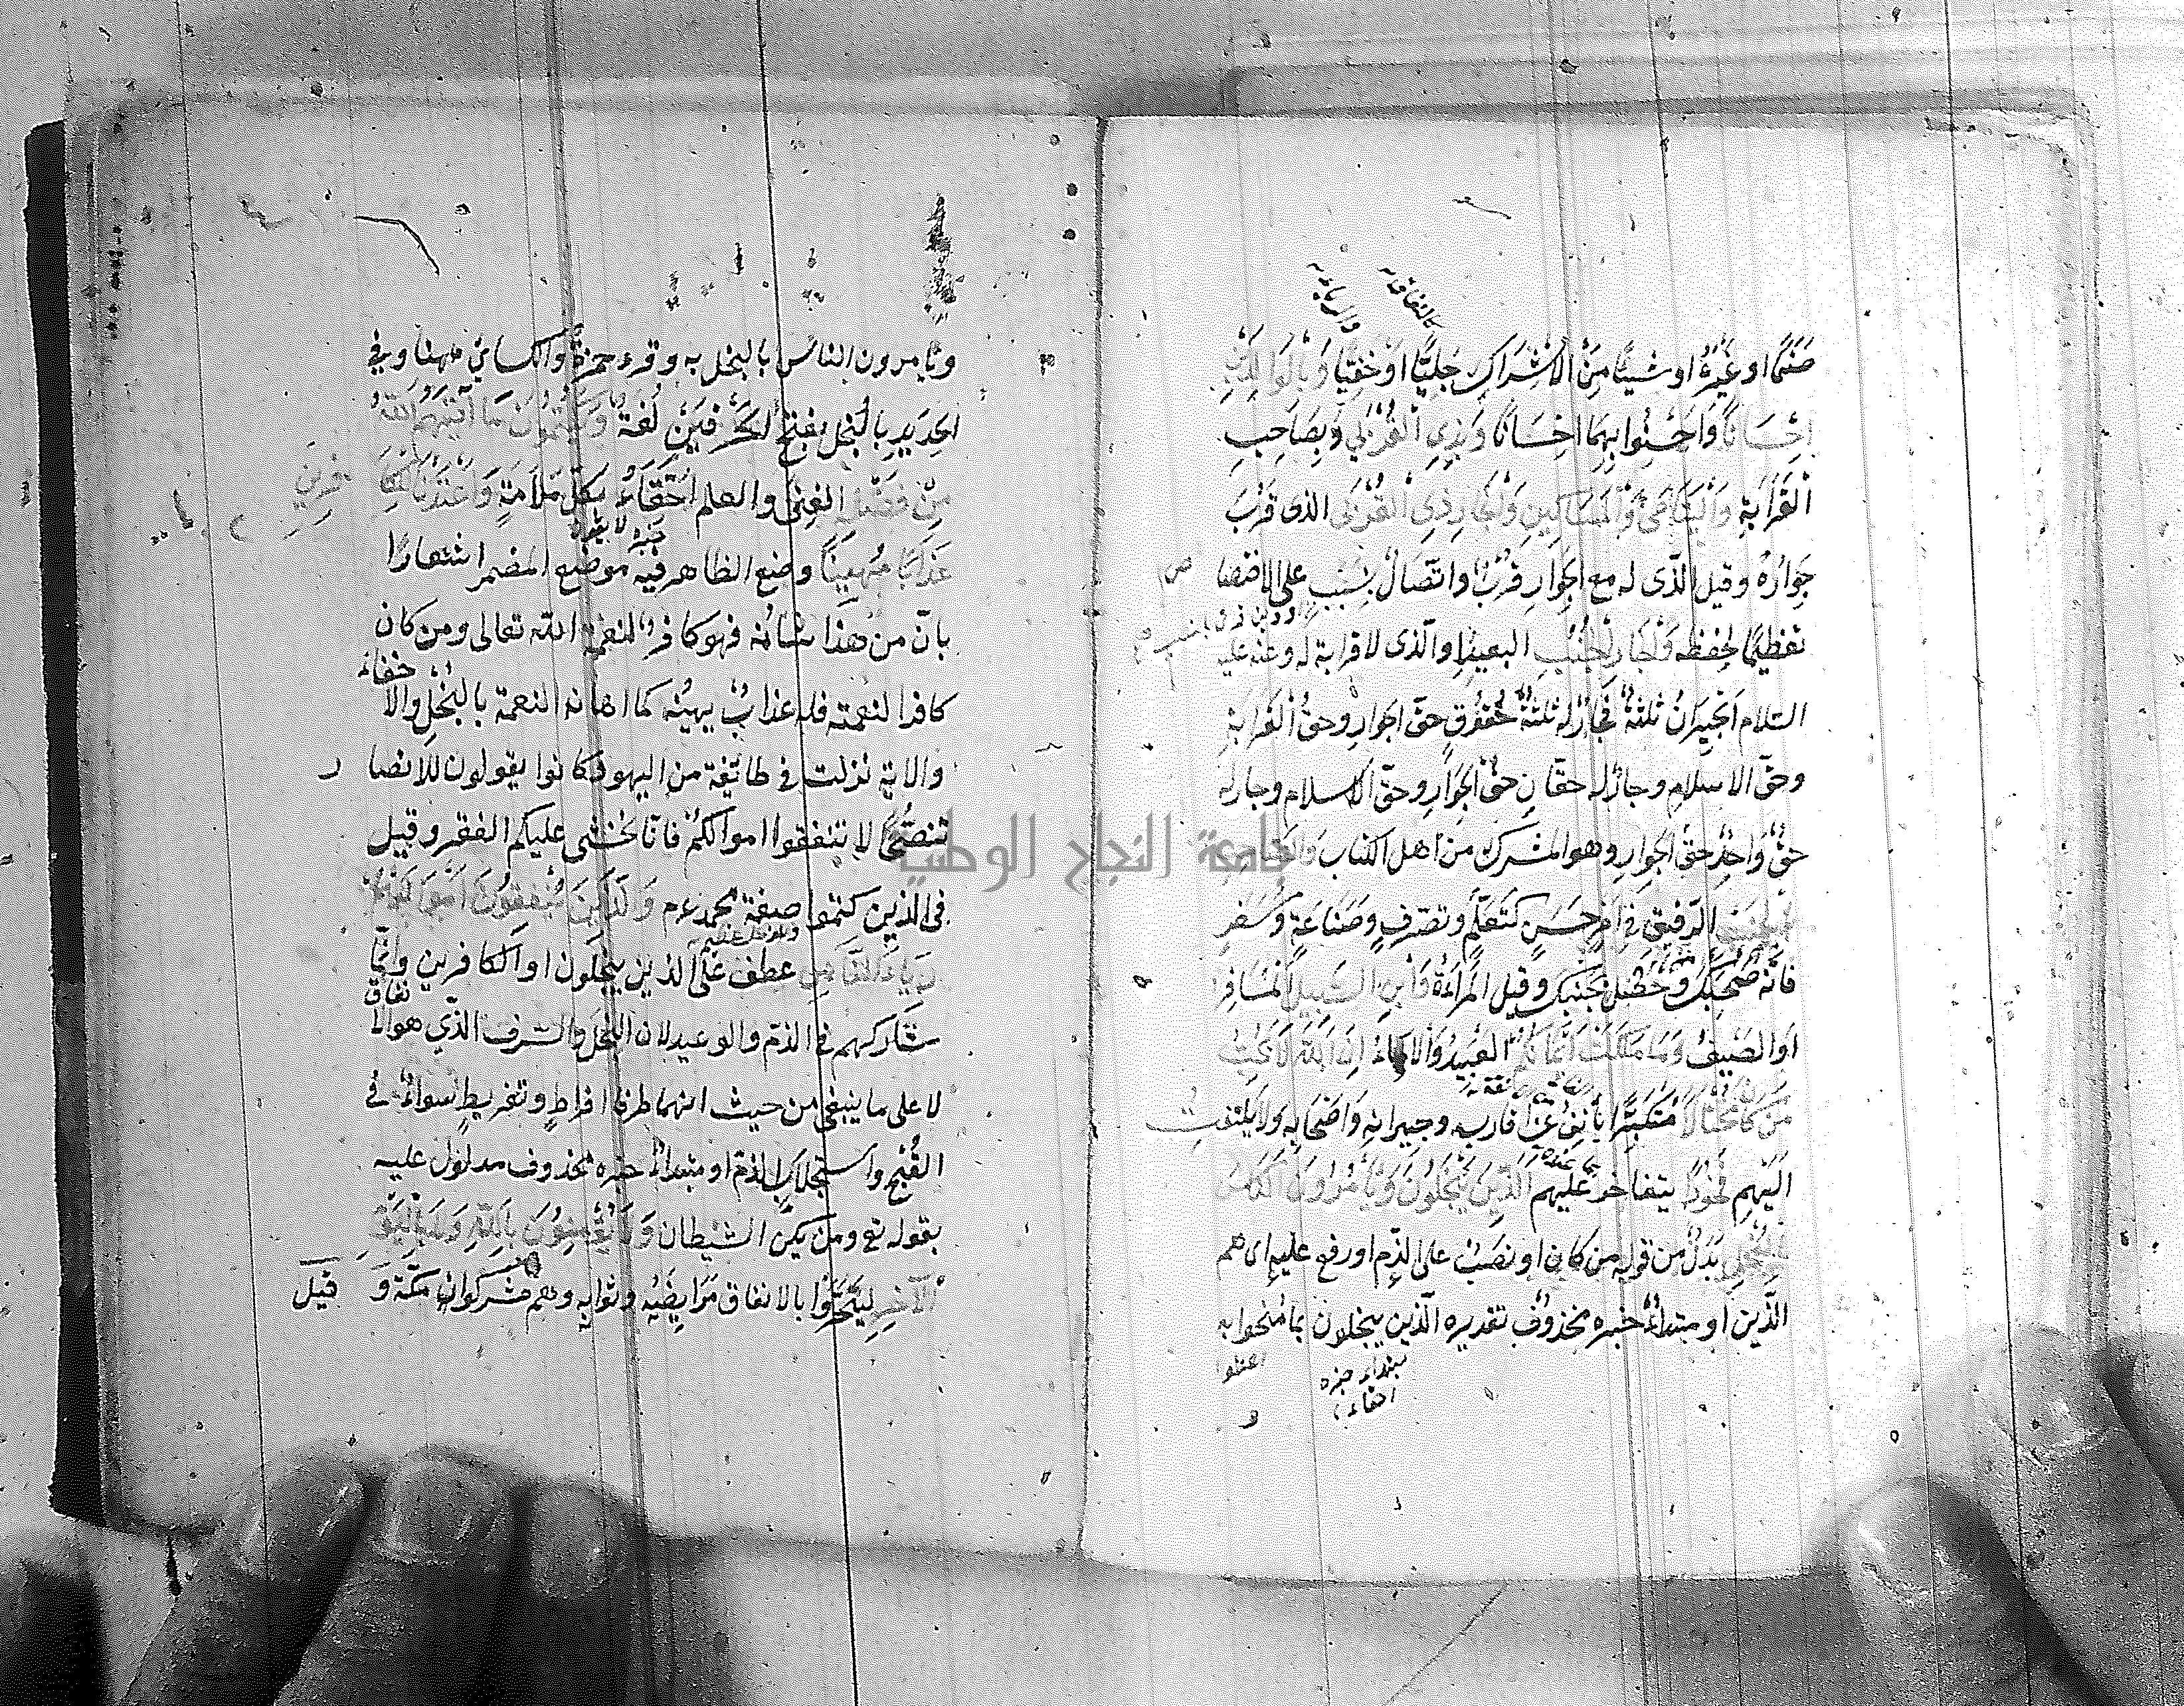 كالنفاقة
والرياء
صَنَمًا او غَيْرَهُ او شيئًا مِنَ الاِشْرَاكِ جَلِيًّا اَوْ خَفِيًّا وَبِالْوَالِدَيْنِ
اِحْسَانًا وَاَحْسِنُوا بِهِمَا اِحْسَانًا وَبِذِى الْقُرْبٰى وَبِصَاحِبِ
الْقَرَابَةِ وَالْيَتَامٰى وَالْمَسَاكِينِ وَالْجَارِ ذِى الْقُرْبٰى الذى قَرُبَ
جِوَارُهُ وقيل الّذى له مع الجِوَارِ قُرْبٌ واتّصالٌ بنَسَبٍ على الاختصا ص
تعظيمًا لحفظه وَالْجَارِ الْجُنُبِ البعيد او الّذى لا قرابة له وعنه عليه
السلام الجِيرَانُ ثلثةٌ فجَارٌ له ثلثةُ حُقُوقٍ حقّ الجوارِ وحقُّ القرابةِ
وحقّ الاسلام وجارٌ له حقّانِ حقُّ الجِوَارِ وحقّ الاسلام وجار له
حقٌّ وَاحِدٌ حقّ الجِوارِ وهو المشرك من اهل الكتاب وَالصَّاحِبِ
بِالْجَنْبِ الرّفيقِ فى اَمْرٍ حَسَنٍ كتَعَلُّمٍ وتصرّفٍ وصَنَاعَةٍ وسَفَرٍ
فانّه صَحِبَكَ وحَصَلَ بجَنْبِكَ وقيل المرأة وَابْنِ السَّبِيلِ المُسَافِرِ
اَوِ الضَيفُ وَمَا مَلَكَتْ اَيْمَانُكُمْ العَبِيدُ وَالاِمَاءُ اِنَّ اللهَ لَا يُحِبُّ
مَنْ كَانَ مُخْتَالًا مُتَكَبِّرًا يَأْنَفُ عَنْ اقاربه وجيرانِهِ وَاَصْحَابِهِ ولا يلتفتُ
اِلَيْهِم فَخُورًا يتفاخر عَليهم اَلَّذِينَ يَبْخَلُونَ وَيَأْمُرُونَ النَّاسَ
بِالْبُخْلِ بَدَلٌ من قوله من كان او نصَبٌ على الذّم او رفع عليه اى هم
الّذين او مبتداءٌ خبره محذوفٌ تقديره الّذين يبخلون بما مُنحوا به
اعطوا
مبتداء خبره
احقاء
ويأمرون الناس بالبخل به وقرء حمزة والكسائي ههنا وفي
الحديدِ بالبَخَل بفتح الحَرْفَيْنِ لُغَةٌ وَيَكْتُمُونَ مَا آتٰيهُمُ اللهُ
مِنْ فَضْلِهِ الغِنٰى والعلم اَحِقَّاءُ بكلّ مَلَامَةٍ وَاَعْتَدْنَا لِلْكَا فِرِينَ
عَذَابًا مُهِينًا وضع الظاهر فيه موضع المضمر اشعارًا
بانّ من هذا شأنه فهو كافرٌ لنعمة الله تعالى ومن كان
كافرا لنعمته فله عذابٌ يهينُه كما اهانه النعمة بالبُخْلِ والا خفاء
والاية نزلت فى طائفة من اليهود كانوا يقولون للانصا ر
تنصّحًا لا تنفقوا اموالكم فانّا نخشى عليكم الفقر وقيل
فى الذين كتموا صفة محمد عم وَالَّذِينَ يُنْفِقُونَ اَمْوَالَهُمْ
رِيَاءَ النَّاسِ عطف على الذين يبخلون او الكافرين وانّما
شاركهم فى الذم والوعيد لان البخل والسرف الّذي هو الا نفاق
لا على ما ينبغى من حيث انهما طرفا افراط وتفريطٍ سواءٌ فى
القُبْح واستجلابِ الذمّ او مبتداءٌ خبره محذوف مدلول عليه
بقوله تع ومن يكن الشيطان وَلَا يُؤْمِنُونَ بِاللهِ وَلَا بِالْيَوْمِ
الْآخِرِ لِيَتَحَرَّوْا بالانفاق مَرَاضِيَهُ وثوابه وهم مشركوا مكّة و قيل
جامعة النجاح الوطنية